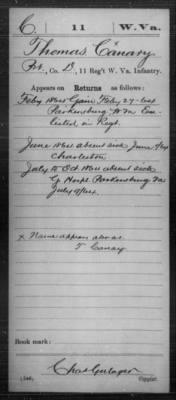 C. 11 W. Va.
Thomas Canary
Pvt., Co. D, 11 Reg't W. Va. Infantry.
Appears on Returns as follows:
Feby 1864 Gain Feby 27-64
Parkersburg W Va En-
listed in Regt.
June 1864 absent sick June 9/64
Charleston
July to Oct 1864 absent sick
G. Hospl Parkersburg Va
July 9/64
x Name appears also as
T Canay
Book mark:
(546)
Copyist.